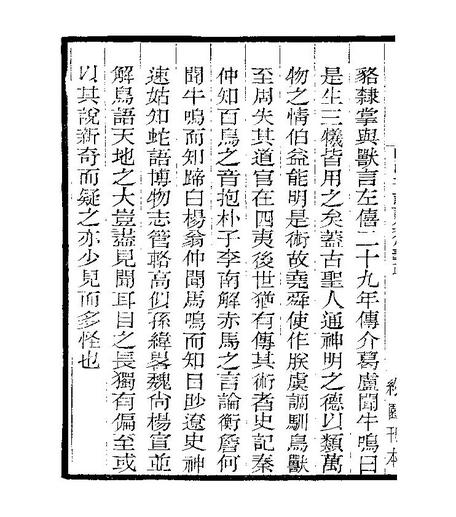 貉隸掌與獸言左僖二十九年傳介葛盧聞牛鳴曰
是生三犧皆用之矣葢古聖人通神明之德以類萬
物之情伯益能明是術故堯舜使作朕虞調馴鳥獸
至周失其道官在四夷後世猶有傳其術者史記秦
仲知百鳥之音抱朴子李南解赤馬之言論衡詹何
聞牛鳴而知蹄白楊翁仲聞馬鳴而知目眇遼史神
速姑知蛇語博物志管輅高似孫緯畧魏尚楊宣並
解鳥語天地之大豈盡見聞耳目之長獨有偏至或
以其說新奇而疑之亦少見而多怪也